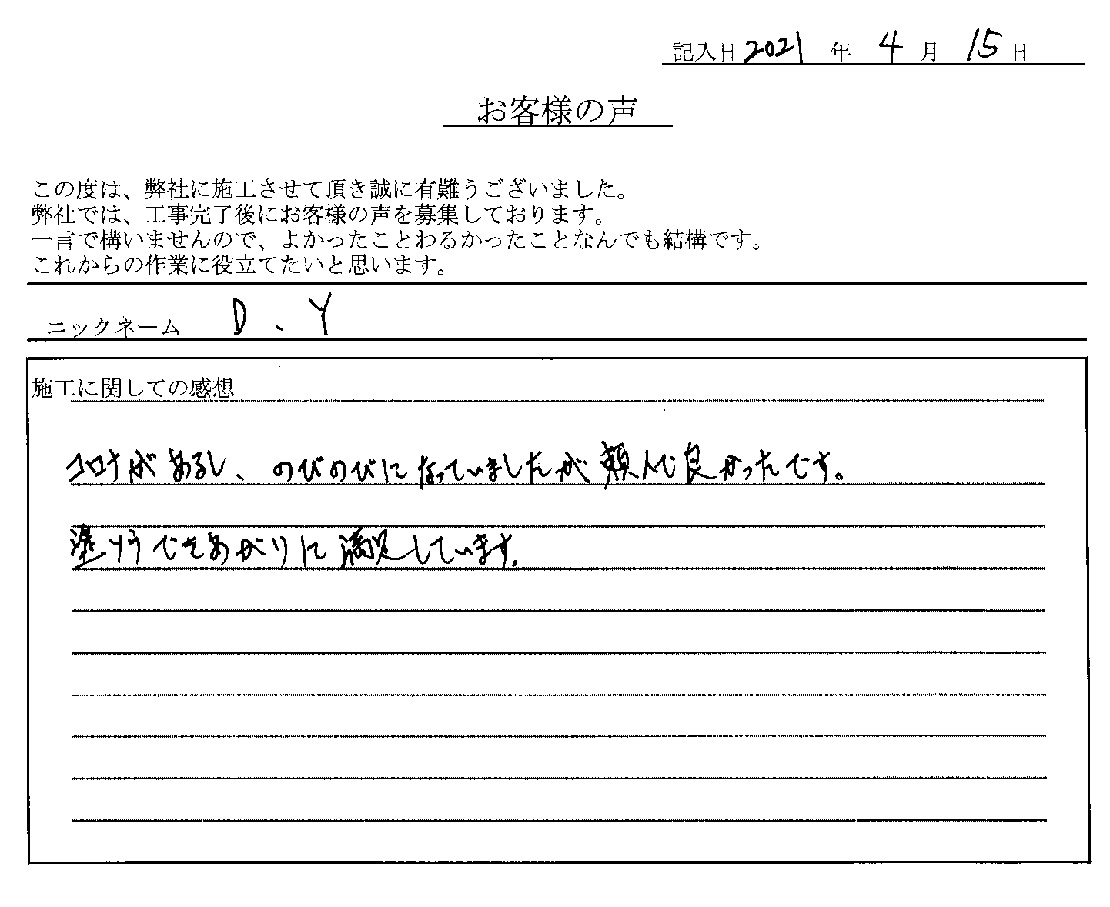 記入日 2021 年 4 月 15 日
お客様の声
この度は、弊社に施工させて頂き誠に有難うございました。
弊社では、工事完了後にお客様の声を募集しております。
一言で構いませんので、よかったことわるかったことなんでも結構です。
これからの作業に役立てたいと思います。
ニックネーム D、Y
施工に関しての感想
コロナがあるし、のびのびになっていましたが頼んで良かったです。
塗りうできあがりに満足しています。